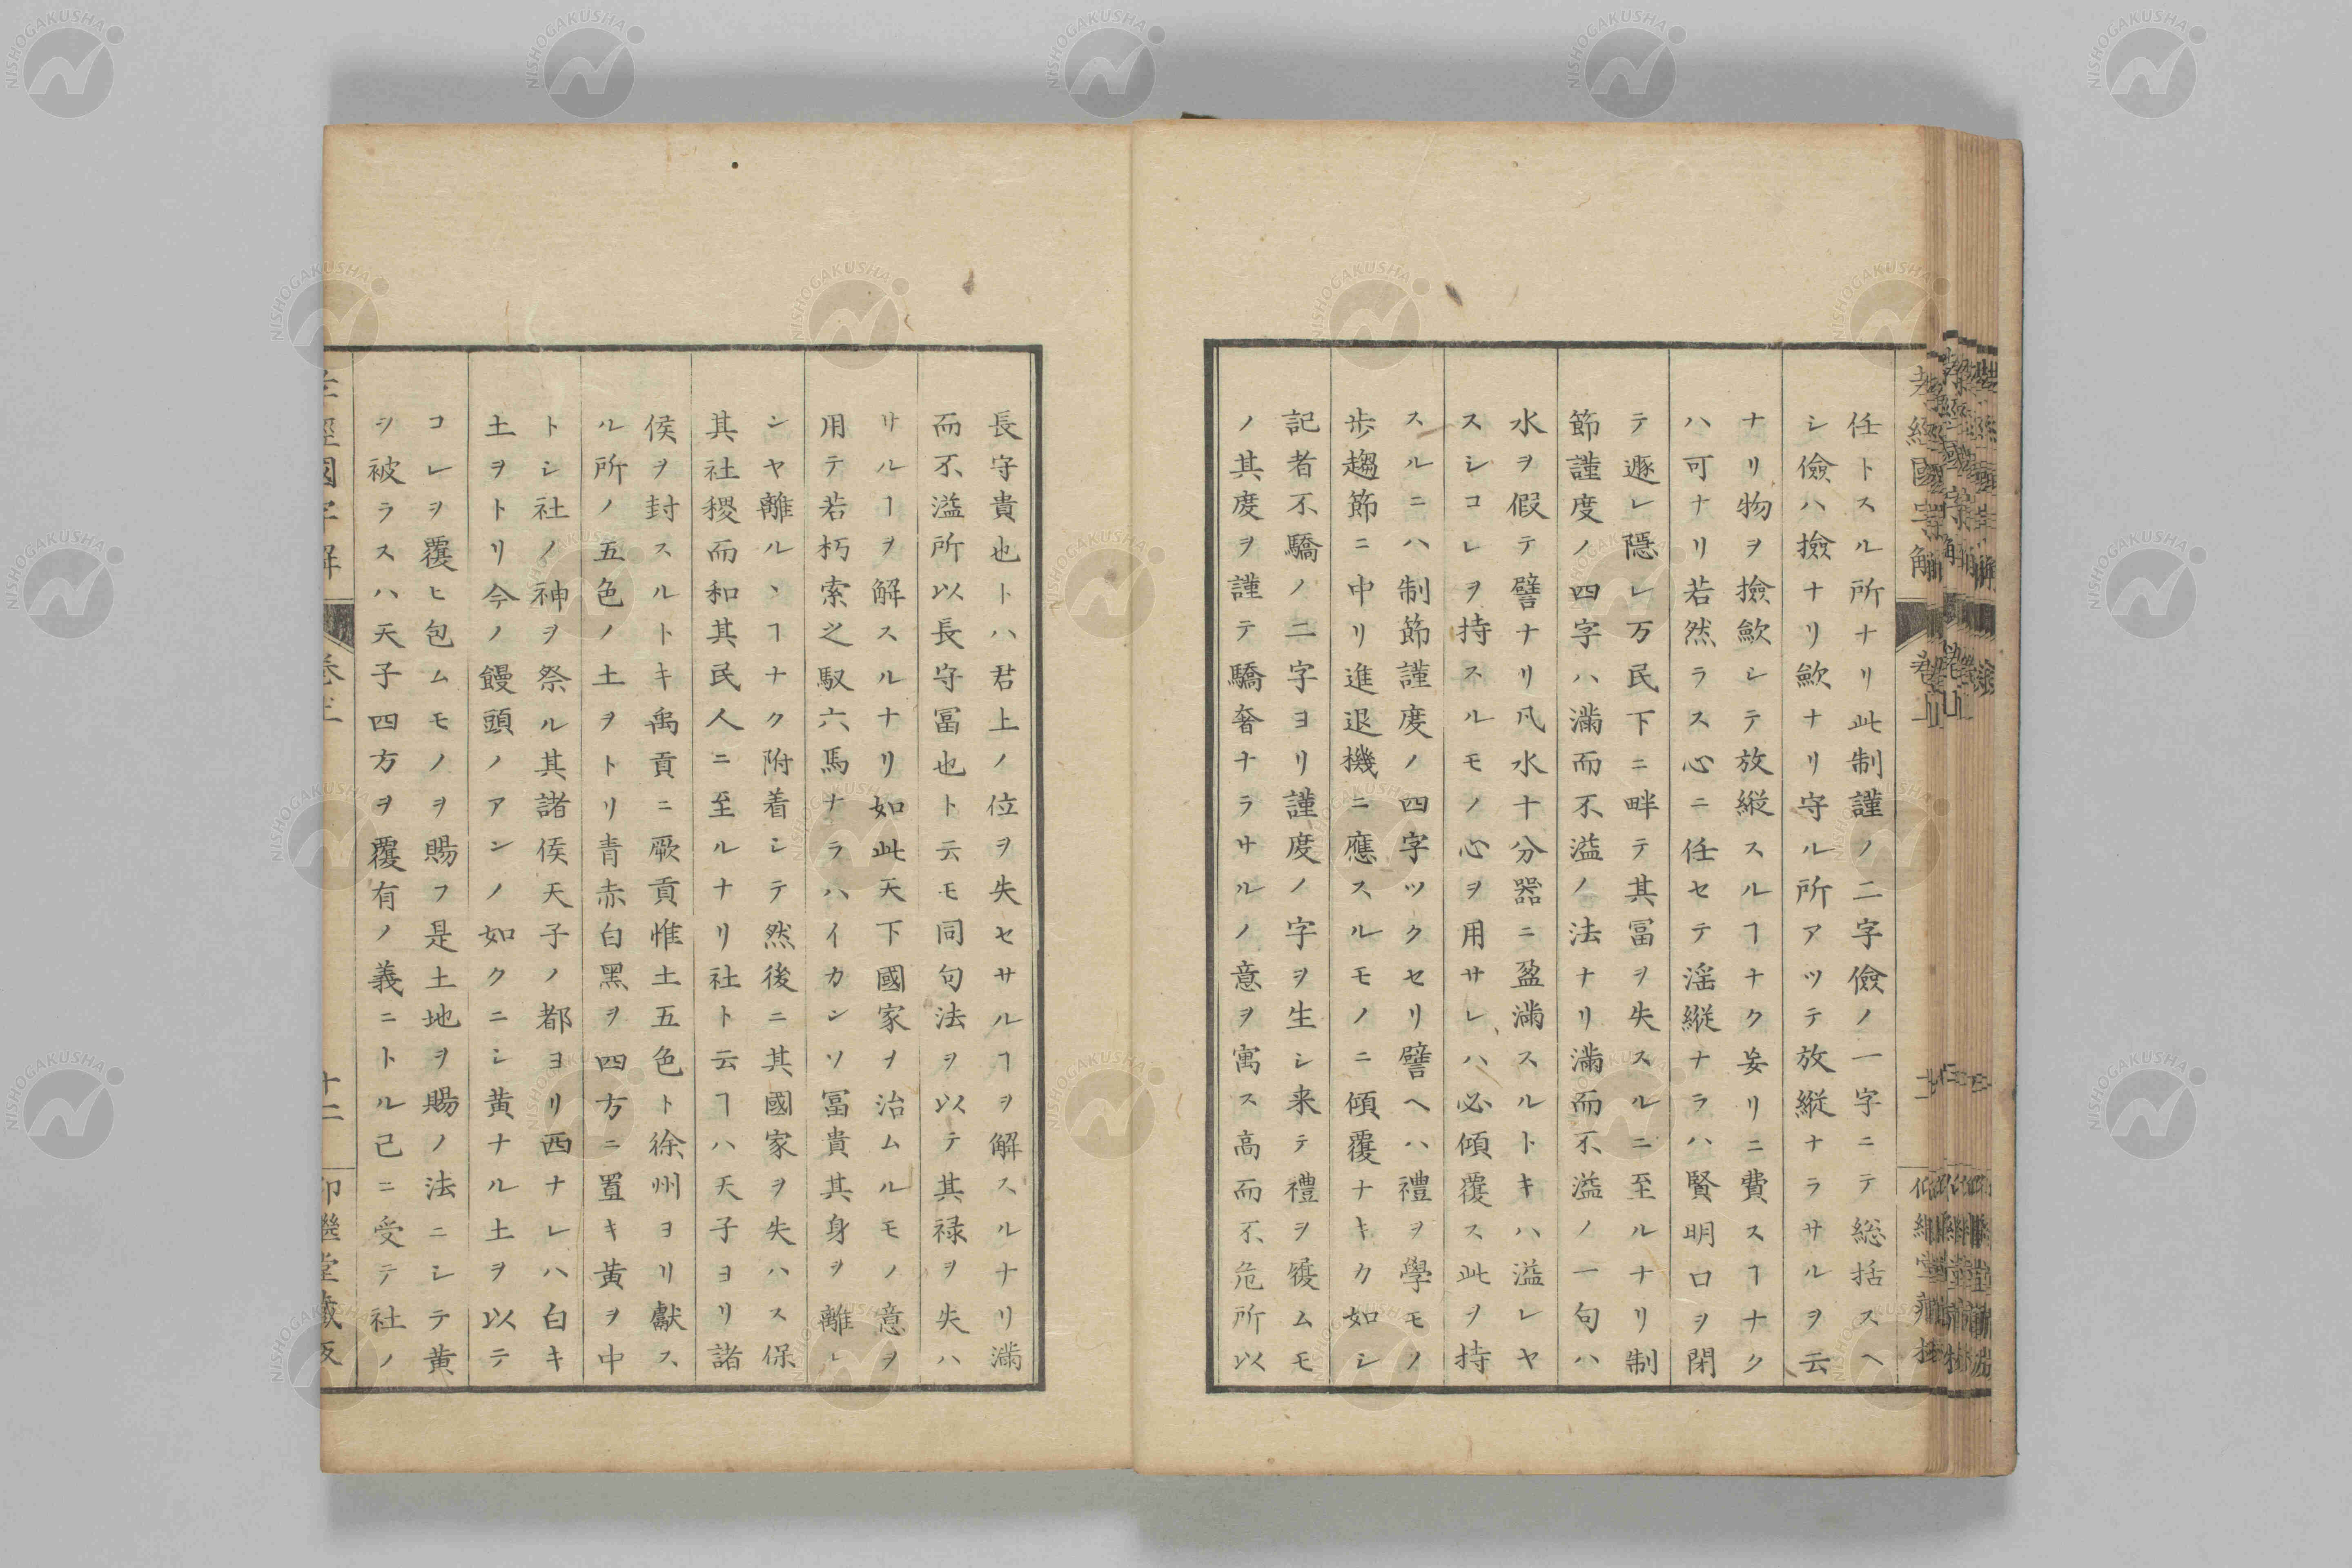 任トスル所ナリ此制謹ノ二字儉ノ一字ニテ総括スヘ
シ儉ハ撿ナリ歛ナリ守ル所アツテ放縦ナラサルヲ云
ナリ物ヲ撿歛シテ放縦スルヿナク妄リニ費スヿナク
ハ可ナリ若然ラス心ニ任セテ淫縦ナラハ賢明口ヲ閉
テ遯レ隠レ万民下ニ畔テ其冨ヲ失スルニ至ルナリ制
節謹度ノ四字ハ滿而不溢ノ法ナリ滿而不溢ノ一句ハ
水ヲ假テ譬ナリ凡水十分器ニ盈滿スルトキハ溢レヤ
スシコレヲ持スルモノ心ヲ用サレハ必傾覆ス此ヲ持
スルニハ制節謹度ノ四字ツクセリ譬ヘハ禮ヲ學モノ
歩趨節ニ中リ進退機ニ應スルモノニ傾覆ナキカ如シ
記者不驕ノ二字ヨリ謹度ノ字ヲ生シ来テ禮ヲ履ムモ
ノ其度ヲ謹テ驕奢ナラサルノ意ヲ寓ス高而不危所以
長守貴也トハ君上ノ位ヲ失セサルヿヲ解スルナリ滿
而不溢所以長守冨也ト云モ同句法ヲ以テ其禄ヲ失ハ
サルヿヲ解スルナリ如此天下國家ヲ治ムルモノ意ヲ
用テ若朽索之馭六馬ナラハイカンソ冨貴其身ヲ離レ
ンヤ離ルヽヿナク附着シテ然後ニ其國家ヲ失ハス保
其社稷而和其民人ニ至ルナリ社ト云ヿハ天子ヨリ諸
侯ヲ封スルトキ禹貢ニ厥貢惟土五色ト徐州ヨリ獻ス
ル所ノ五色ノ土ヲトリ青赤白黑ヲ四方ニ置キ黄ヲ中
トシ社ノ神ヲ祭ル其諸侯天子ノ都ヨリ西ナレハ白キ
土ヲトリ今ノ饅頭ノアンノ如クニシ黄ナル土ヲ以テ
コレヲ覆ヒ包ムモノヲ賜フ是土地ヲ賜ノ法ニシテ黄
ヲ被ラスハ天子四方ヲ覆有ノ義ニトル己ニ受テ社ノ